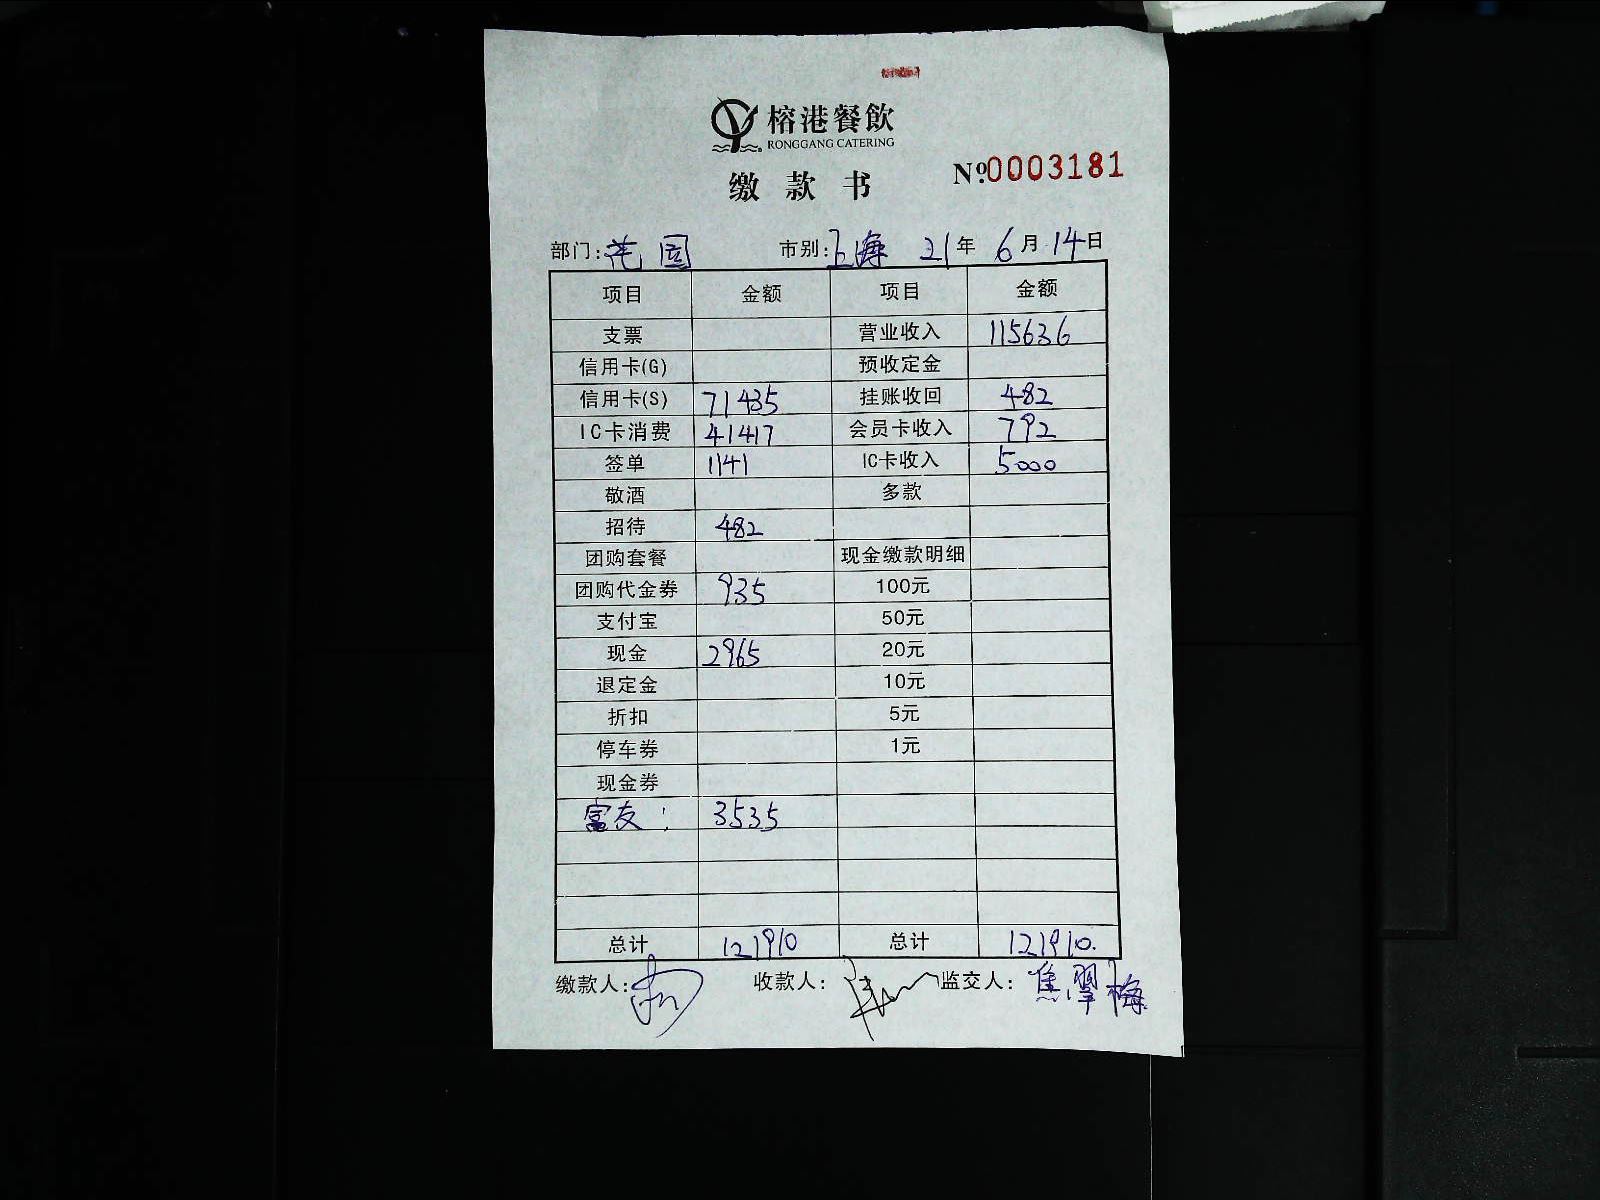 榕港餐飲
RONGGANG CATERING
缴款书
№0003181
部门:花园 市别:上海 21年6月14日
项目 金额 项目 金额
支票 营业收入 115636
信用卡(G) 预收定金
信用卡(S) 71435 挂账收回 482
IC卡消费 41417 会员卡收入 792
签单 1141 IC卡收入 5000
敬酒 多款
招待 482
团购套餐 现金缴款明细
团购代金券 935 100元
支付宝 50元
现金 2965 20元
退定金 10元
折扣 5元
停车券 1元
现金券
富友: 3535
总计 121910 总计 121910.
缴款人: 收款人: 监交人:焦翠梅